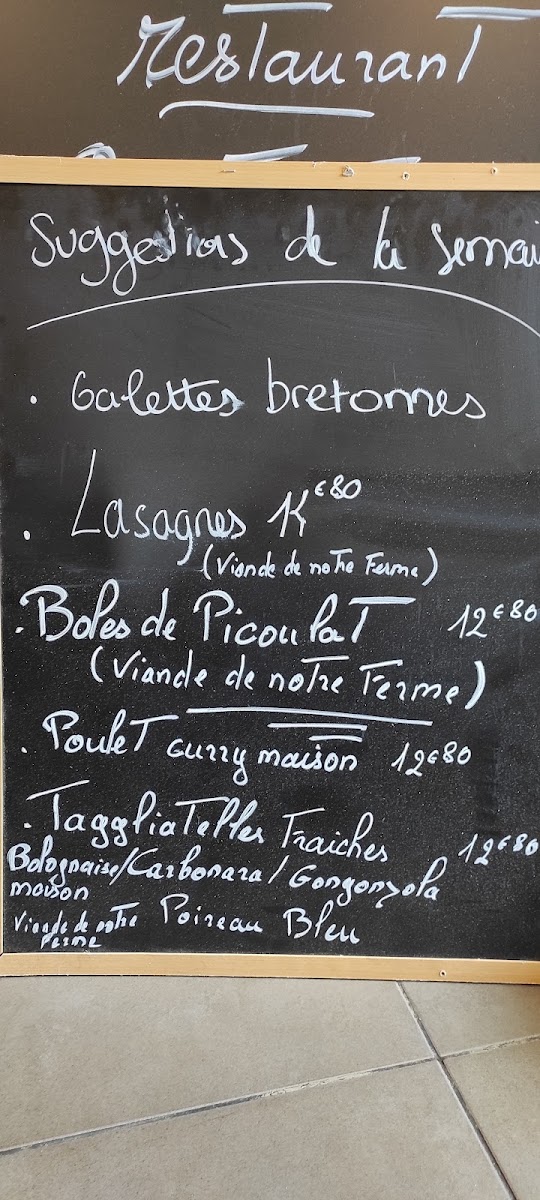 Restaurant
Suggestions de la Semai
. Galettes bretonnes
. Lasagnes 1€80
(Viande de notre Ferme)
. Boles de Picoulat 12€80
(Viande de notre Ferme)
. Poulet curry maison 12€80
. Taggliatelles Fraiches 12€80
Bolognaise/Carbonara/Gongonzola
maison
Viande de notre Poireau Bleu
Ferme